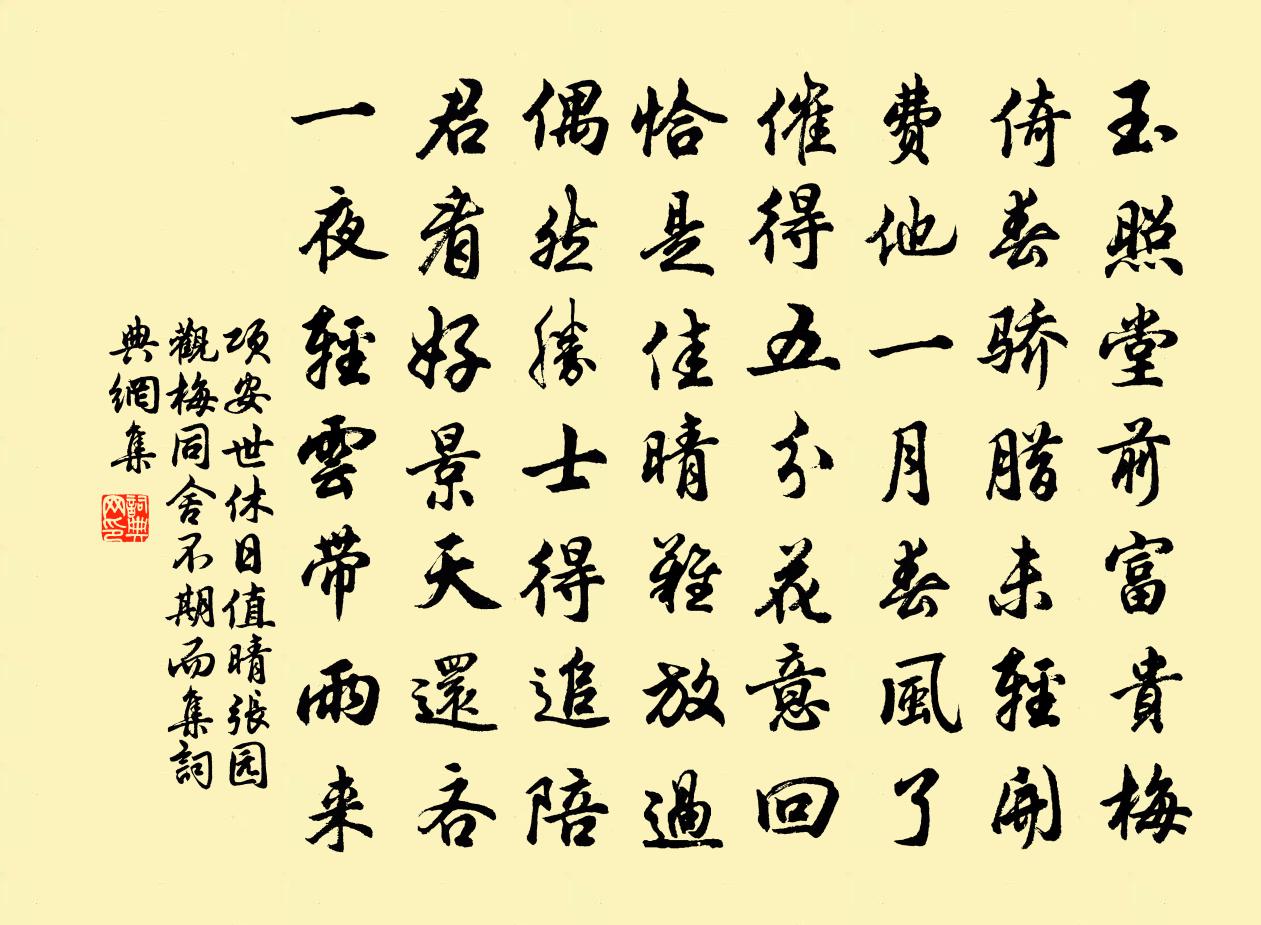 玉照堂前富貴梅
倚春骄腊未輕開
費他一月春風了
催得五分花意回
恰是佳晴難放過
偶然勝士得追陪
君看好景天還吝
一夜輕雲帶雨来
项安世休日值晴張园
觀梅同舍不期而集詞
典網集
詞典
网印